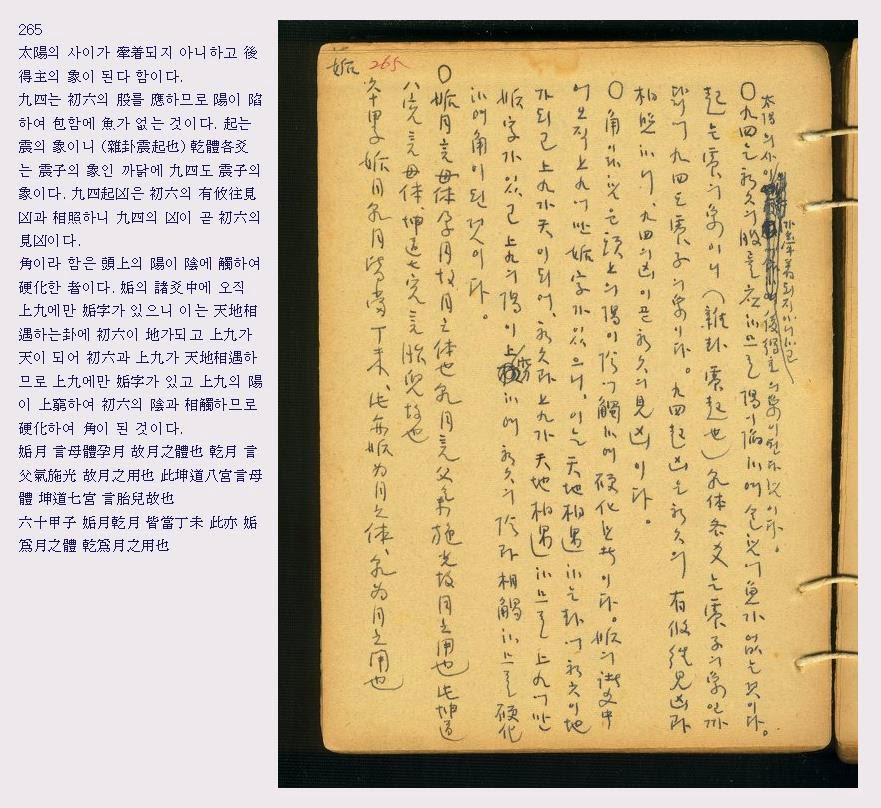 265
太陽의 사이가 牽着되지 아니하고 後
得主의 象이 된다 함이다.
九四는 初六의 股를 應하므로 陽이 陷
하여 包함에 魚가 없는 것이다. 起는
震의 象이니 (雜卦震起也) 乾體各爻
는 震子의 象인 까닭에 九四도 震子의
象이다. 九四起凶은 初六의 有攸往見
凶과 相照하니 九四의 凶이 곧 初六의
見凶이다.
角이라 함은 頭上의 陽이 陰에 觸하여
硬化한 者이다. 姤의 諸爻中에 오직
上九에만 姤字가 있으니 이는 天地相
遇하는卦에 初六이 地가되고 上九가
天이 되어 初六과 上九가 天地相遇하
므로 上九에만 姤字가 있고 上九의 陽
이 上窮하여 初六의 陰과 相觸하므로
硬化하여 角이 된 것이다.
姤月 言母體孕月 故月之體也 乾月 言
父氣施光 故月之用也 此坤道八宮言母
體 坤道七宮 言胎兒故也
六十甲子 姤月乾月 皆當丁未 此亦 姤
爲月之體 乾爲月之用也
姤 265
太陽의 사이가 牽着되지 아니하고 後得主의 象이 된다 함이다.
〇九四는 初六의 股를 應하므로 陽이 陷하여 包함에 魚가 없는 것이다.
起는 震의 象이니 (雜卦 震起也) 乾体各爻는 震子의 象인 까
닭에 九四도 震子의 象이다. 九四起凶은 初六의 有攸往見凶과
相照하니, 九四의 凶이 곧 初六의 見凶이다.
〇角이라 함은 頭上의 陽이 陰에 觸하여 硬化한 者이다. 姤의 諸爻中
에 오직 上九에만 姤字가 있으니, 이는 天地相遇하는 卦에 初六이 地
가되고 上九가 天이 되어, 初六과 上九가 天地相遇하므로 上九에만
姤字가 있고 上九의 陽이 上窮하여 初六의 陰과 相觸하므로 硬化
하여 角이 된 것이다.
〇姤月 言母体孕月 故月之体也 乾月 言父氣施光 故月之用也 此坤道
八宮 言母体, 坤道七宮 言胎兒故也
六十甲子 姤月乾月 皆當丁未, 此亦姤为月之体, 乾为月之用也